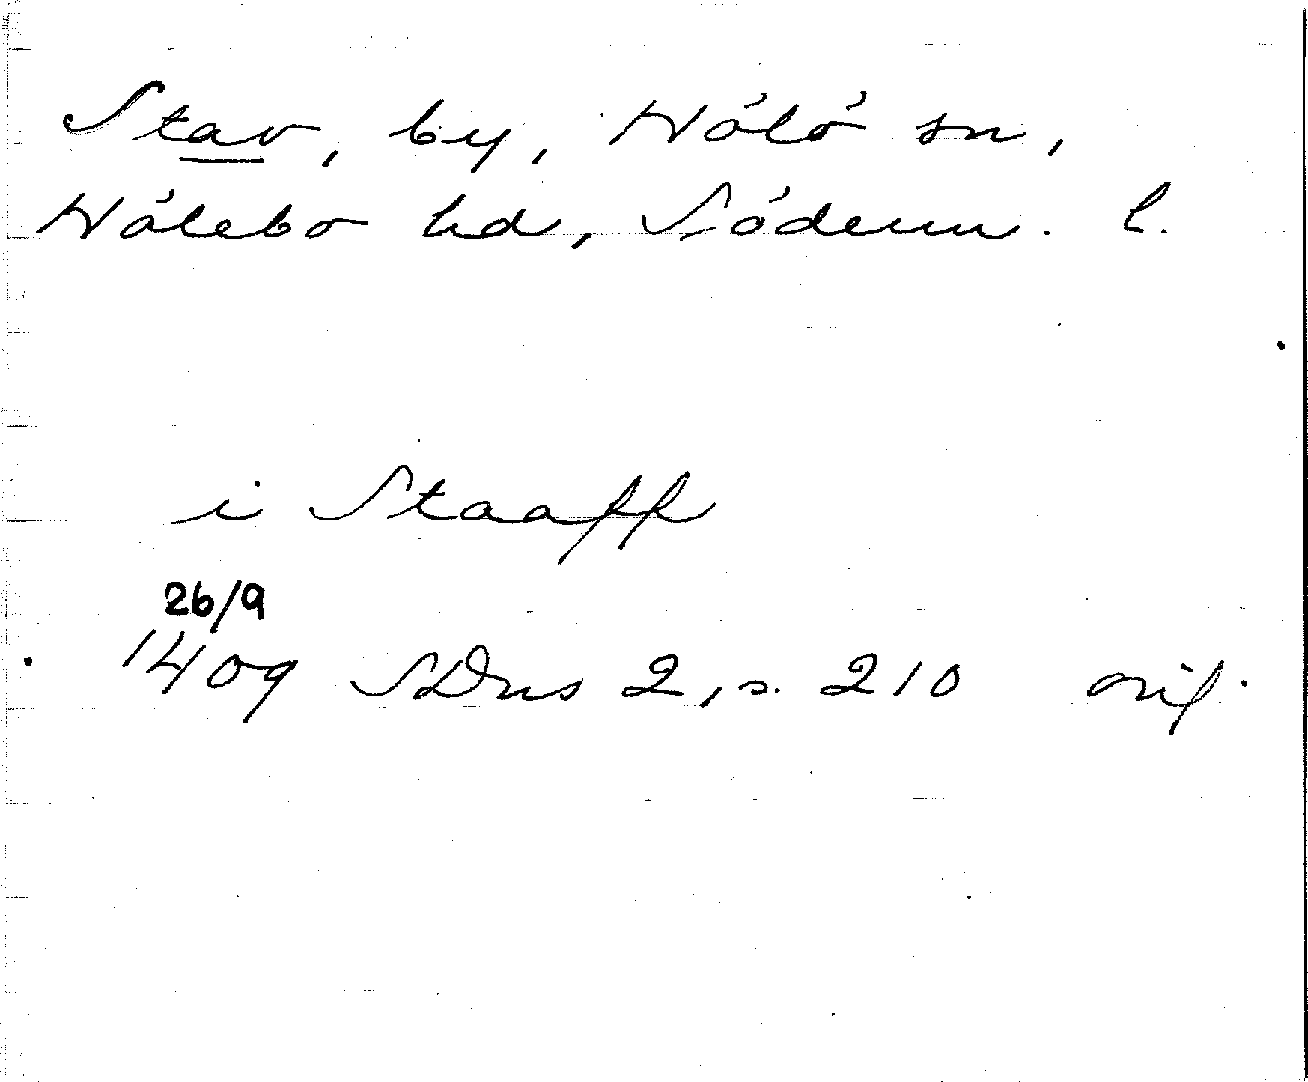 Stav, by, Hölö sn,
Hölebo hd, Söderm. l.
i Staaff
26/9
1409 SDns 2, s. 210 orig.